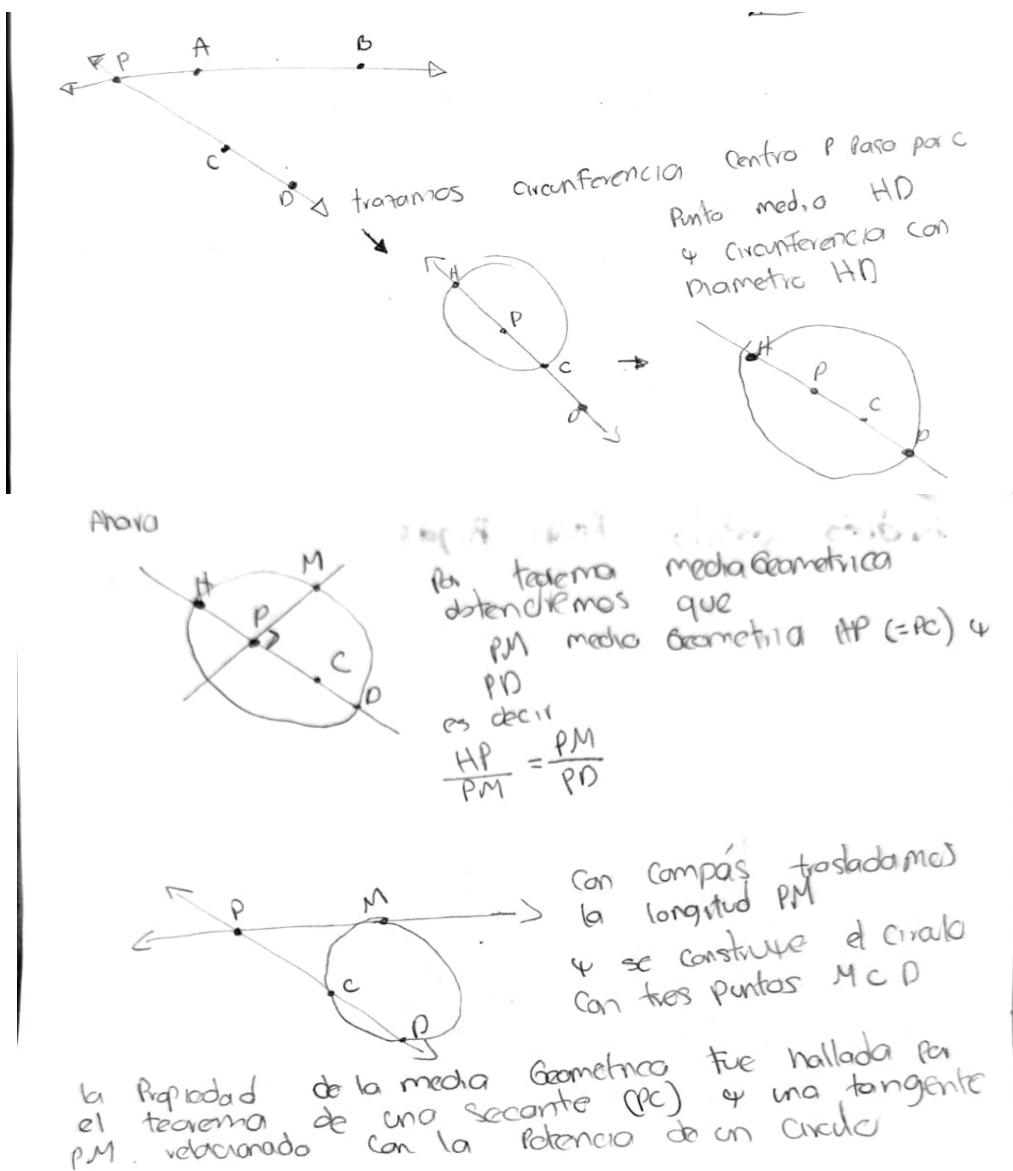 P A B
C
D
trazamos circunferencia Centro P Paso por C
Punto medio HD
y circunferencia con
Diametro HD
H
P
C
D
H
P
C
D
Ahora
H M
P
C
D
Por teorema media Geometrica
obtendremos que
PM media Geometria HP (=PC) y
PD
es decir
HP/PM = PM/PD
P M
C
D
Con Compás trasladamos
la longitud PM
y se construye el circulo
Con tres puntos M C D
la Propiedad de la media Geometrica fue hallada por
el teorema de una secante (PC) y una tangente
PM. relacionado con la Potencia de un circulo